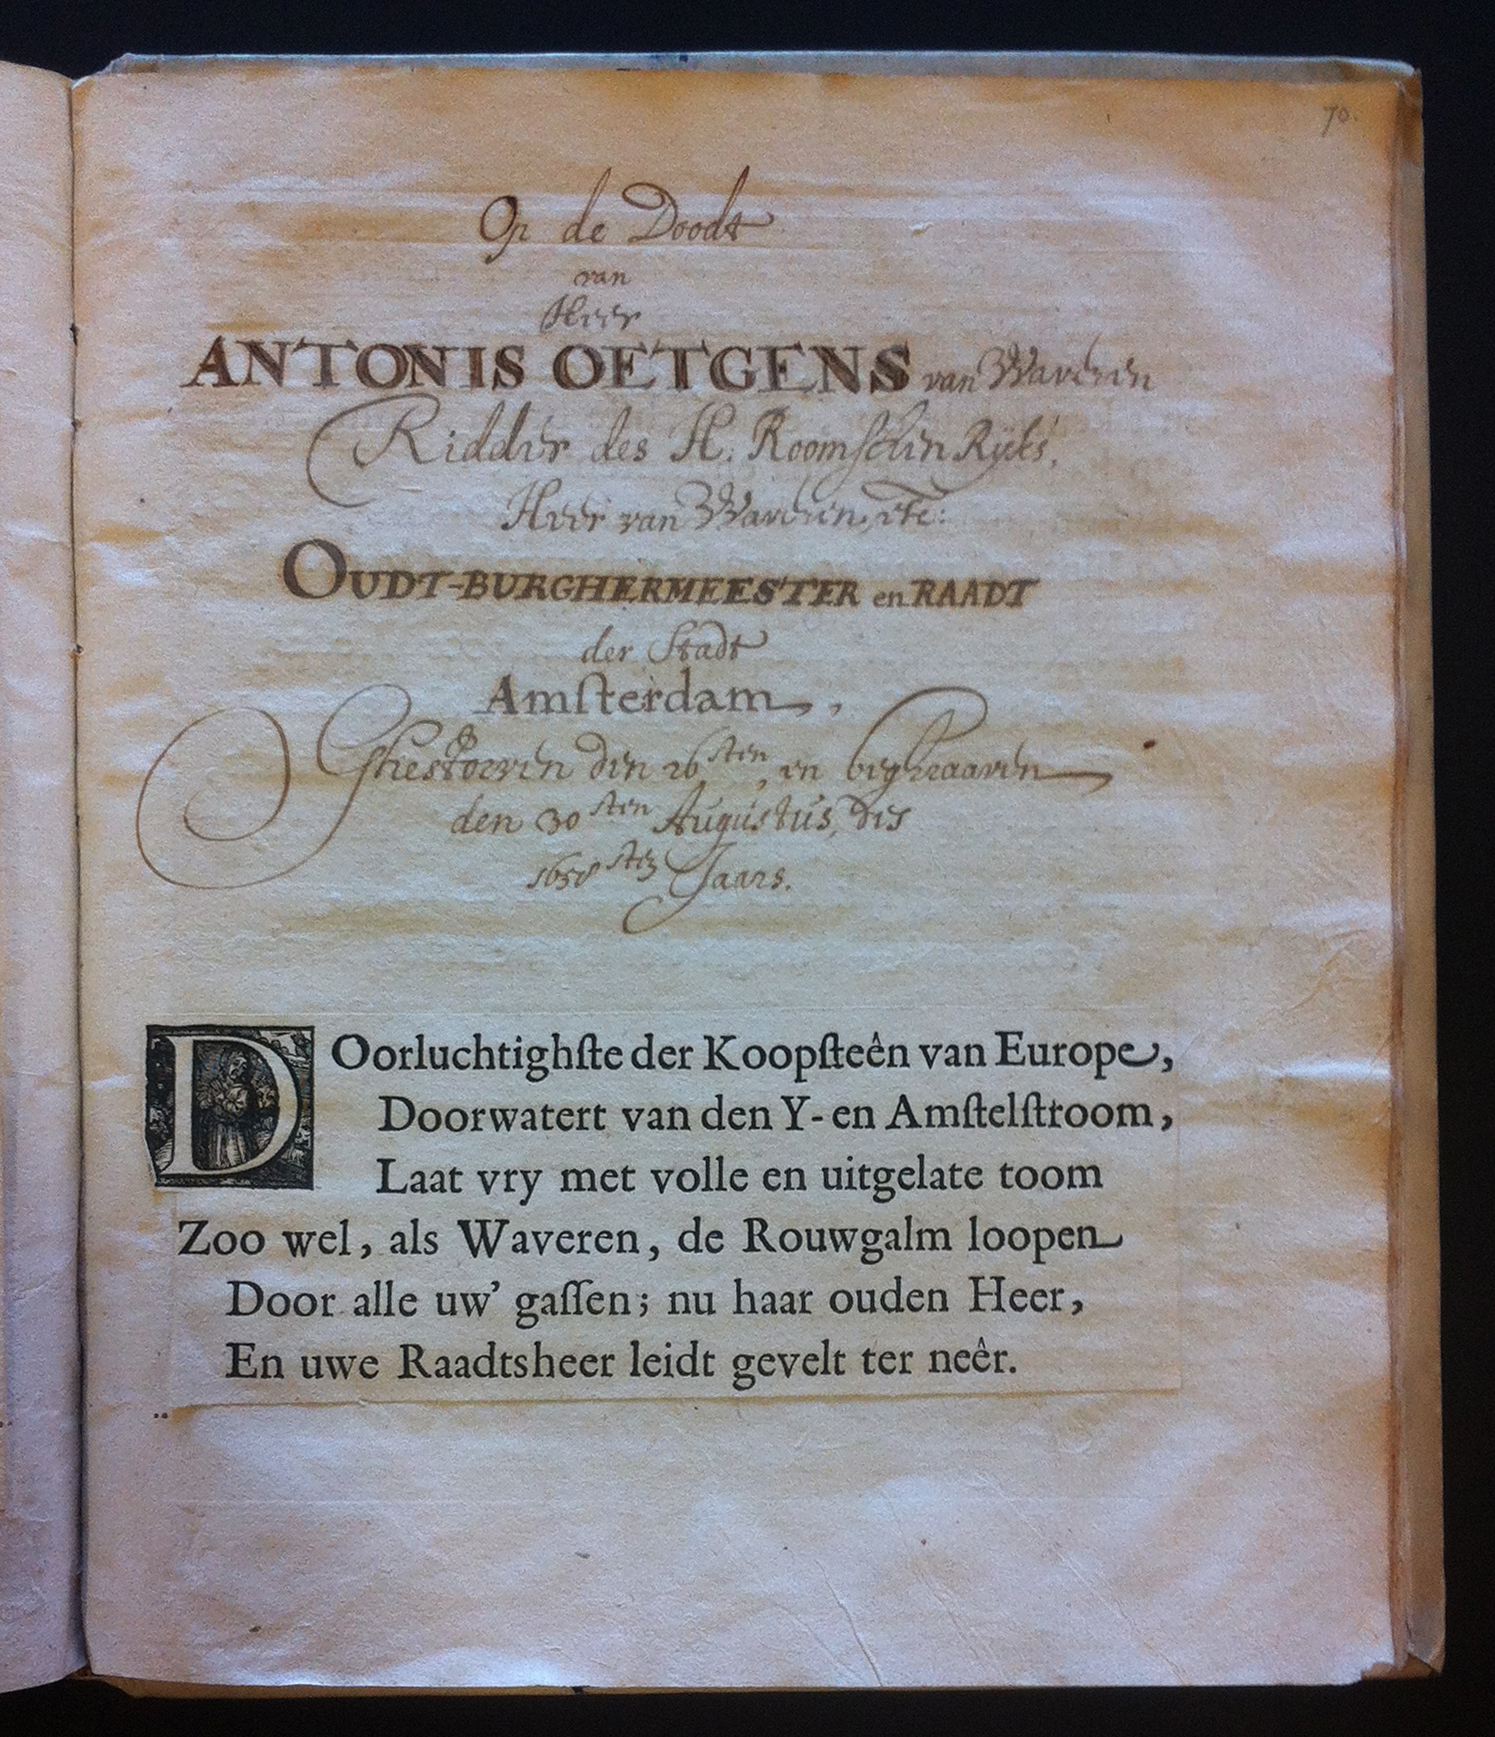 70.
Op de Doodt
van
Heer
ANTONIS OETGENS van Waveren
Ridder des H. Roomschen Rycks,
Heer van Waveren, etc:
OUDT-BURGHERMEESTER en RAADT
der Stadt
Amſterdam,
Ghestorven den 26sten, en beghraaven
den 30sten Augustus, des
1658sten Jaars.
DOorluchtighſte der Koopſteên van Europe,
Doorwatert van den Y- en Amſtelſtroom,
Laat vry met volle en uitgelate toom
Zoo wel, als Waveren, de Rouwgalm loopen
Door alle uw' gaſſen; nu haar ouden Heer,
En uwe Raadtsheer leidt gevelt ter neêr.